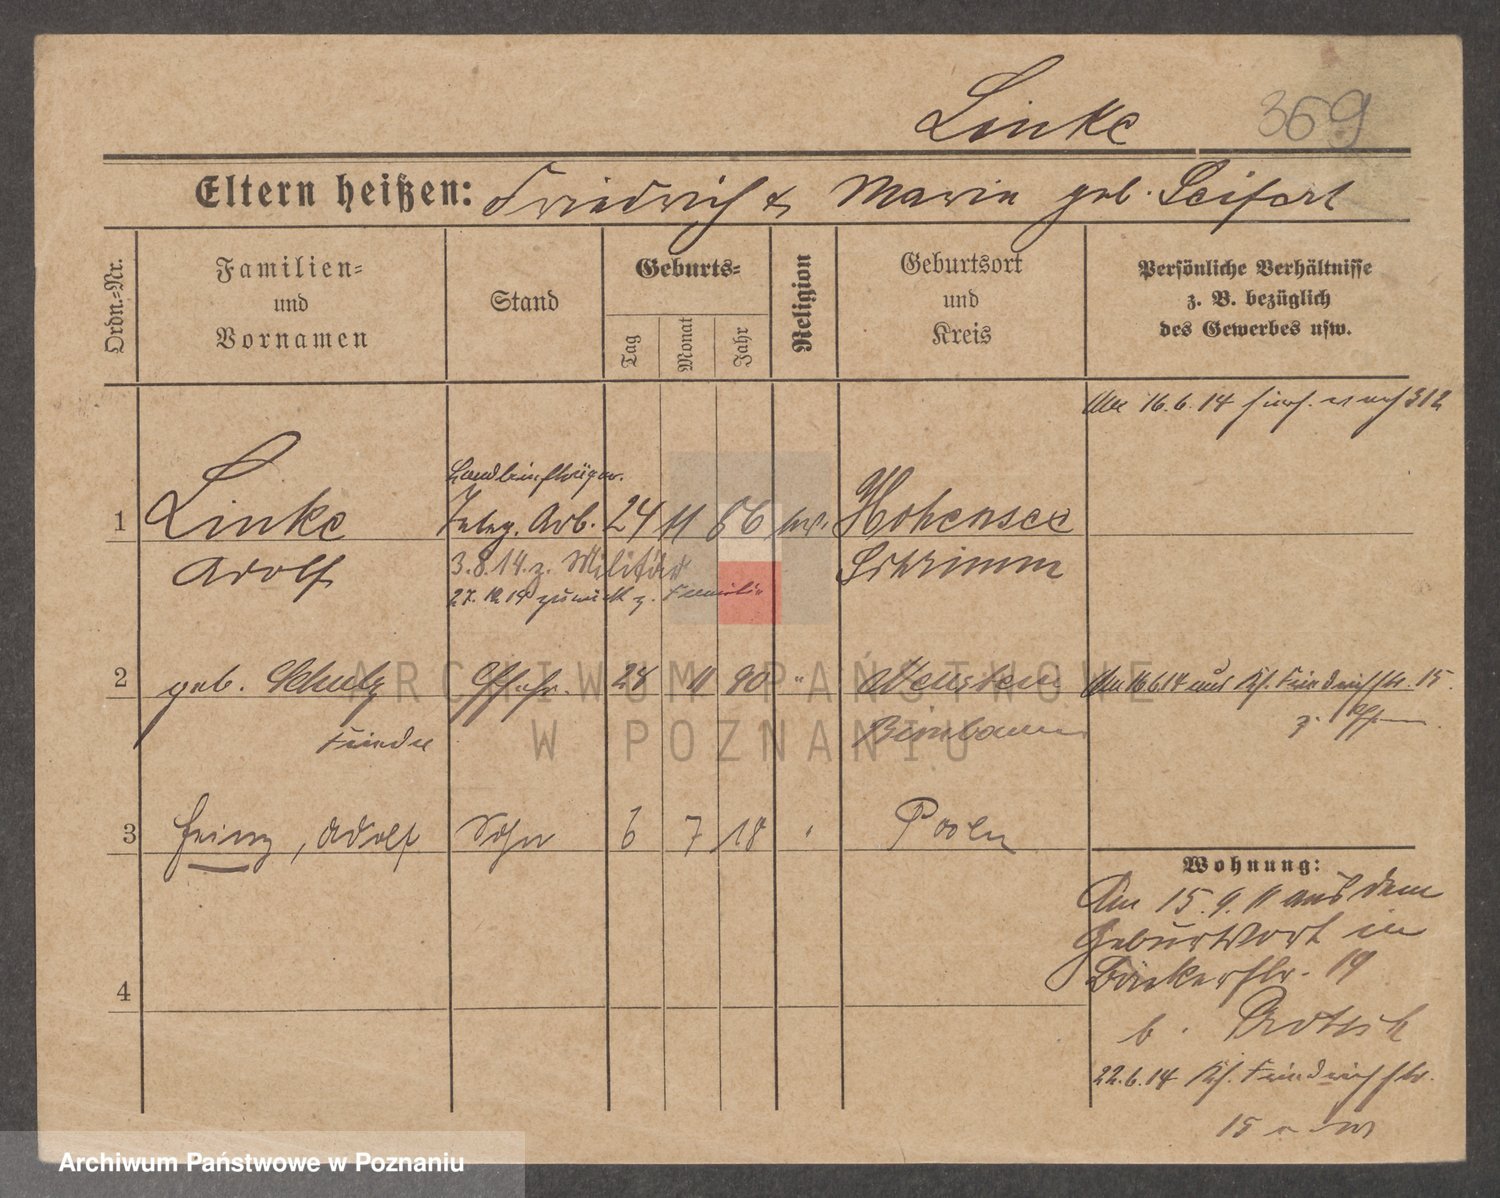 Linke 369
Eltern heißen: Friedrich & Marie geb. Seifert
Ordn.=Nr.
Familien=
und
Vornamen
Stand
Geburts=
Tag
Monat
Jahr
Religion
Geburtsort
und
Kreis
Persönliche Verhältnisse
z. B. bezüglich
des Gewerbes usw.
Am 16.6.14 nach 312
1 Linke Teleg. Arb. 24 11 86 ev. Hohensee
Adolf 3.8.14. z. Militär Schrimm
27. 12 14 zurück z. Familie
2 geb. Schulz Ehefr. 28 11 90 "
Am 16.6.14 aus Kl. Friedrichstr. 15.
Frieda Birnbaum
3 Heinz, Adolf Sohn 6 7 18 " Posen
Wohnung:
Am 15.9.11 aus dem
Geburtsort in
Bäckerstr. 19
b.
4
22.6.14 Kl. Friedrichstr.
15
ARCHIWUM PAŃSTWOWE
W POZNANIU
Archiwum Państwowe w Poznaniu